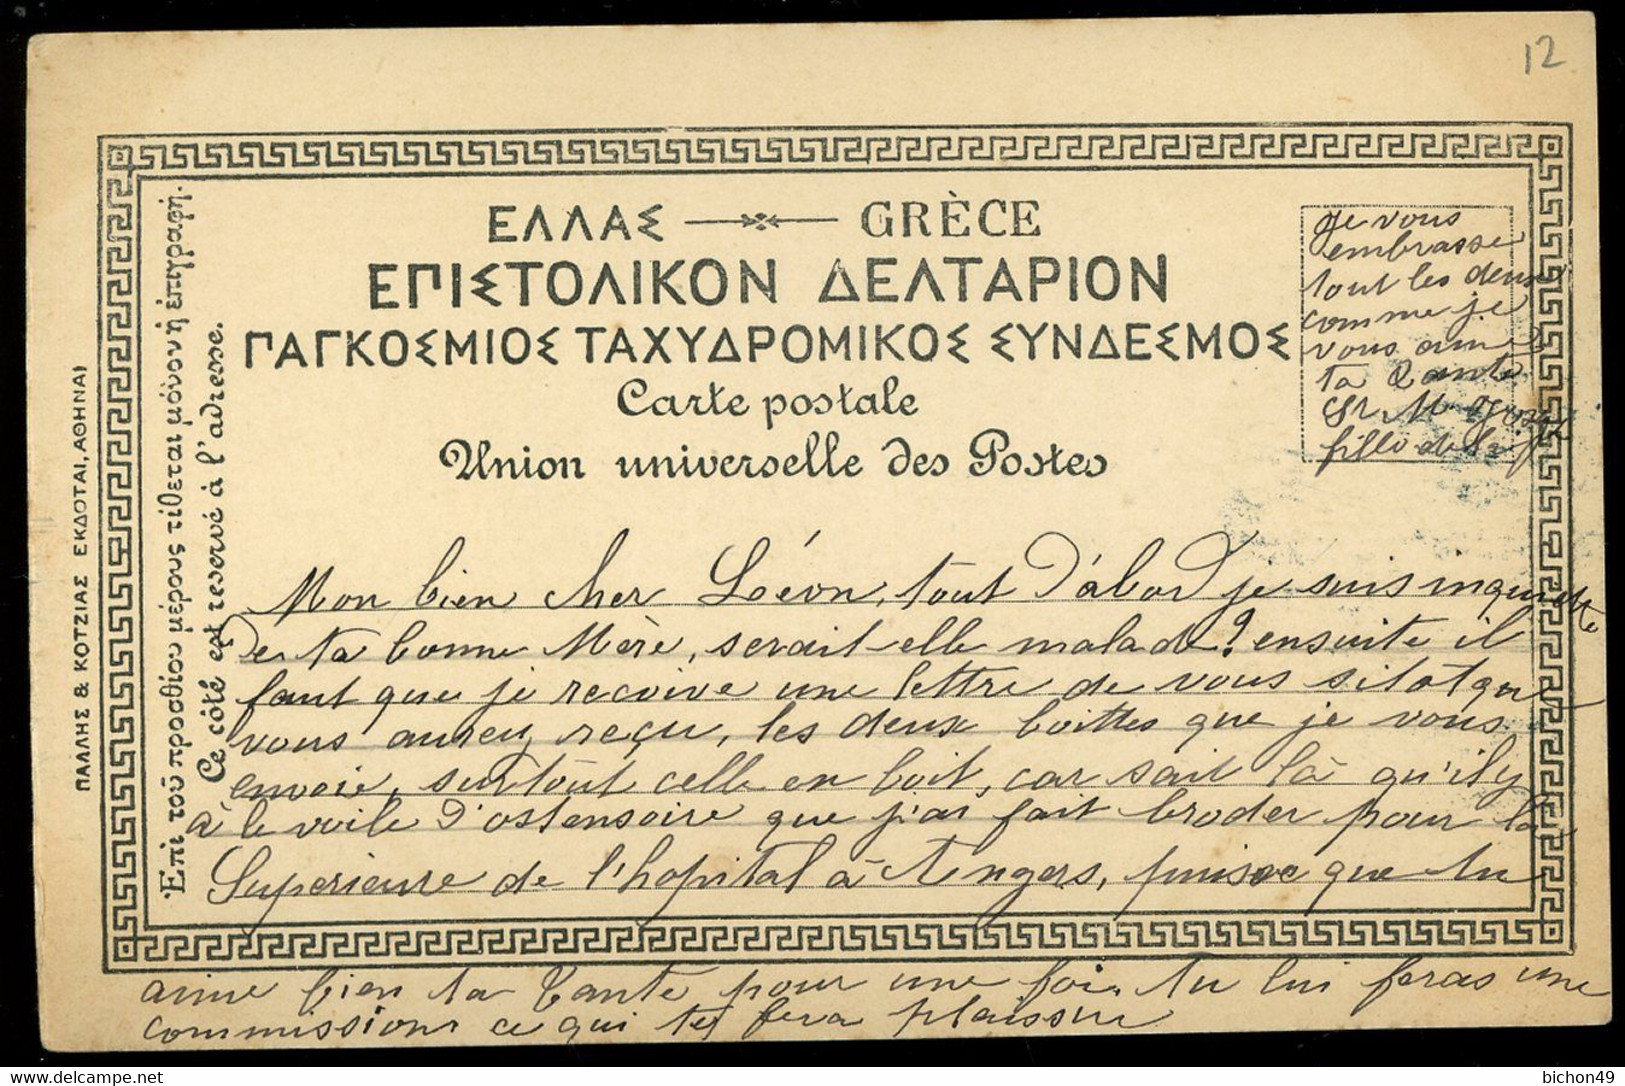 12
ΕΛΛΑΣ GRÈCE
ΕΠΙΣΤΟΛΙΚΟΝ ΔΕΛΤΑΡΙΟΝ
ΠΑΓΚΟΣΜΙΟΣ ΤΑΧΥΔΡΟΜΙΚΟΣ ΣΥΝΔΕΣΜΟΣ
Carte postale
Union universelle des Postes
ΠΑΛΛΗΣ & ΚΟΤΖΙΑΣ ΕΚΔΟΤΑΙ, ΑΘΗΝΑΙ
Ἐπὶ τοῦ προσθίου μέρους τίθεται μόνον ἡ ἐπιγραφή.
Ce côté est reservé à l'adresse.
Je vous
embrasse
tout les deux
comme je
vous aime
ta Tante
Sr. M. Josep
fille de la
Mon bien cher Léon, tout d'abord je suis inquiette
de ta bonne Mère, serait-elle malade? ensuite il
faut que je recoive une lettre de vous sitot que
vous aureu reçu, les deux boittes que je vous
envoie, surtout celle en boit, car sait là qu'il y
à le voile d'ostensoire que j'ai fait broder pour la
Superieure de l'hopital à Angers, puisce que tu
aime bien ta Tante pour une foi, tu lui feras une
commissions ce qui te fera plaissir
delcampe.net
bichon49